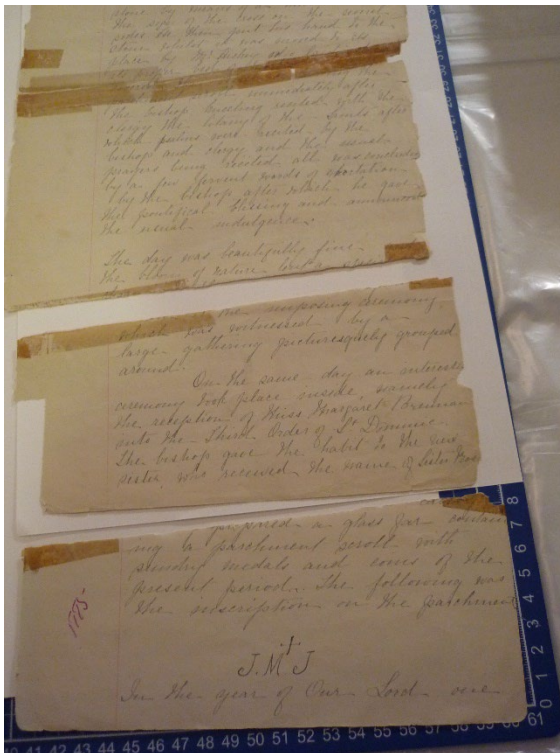 the sign of the cross on the
order. He then put his hand to the
stone whilst it was
place by
immediately after
the bishop kneeling recited with the
clergy the litany of the Saints after
which psalms were recited by the
bishop and clergy and the usual
prayers being recited all was concluded
by a few fervent words of exhortation
by the bishop after which he gave
the pontifical blessing and announced
the usual indulgence.
The day was beautifully fine
the of nature
one imposing ceremony
which was witnessed by a
large gathering picturesquely grouped
around.
On the same day an interes
ceremony took place inside, namely
the reception of Miss Margaret Brennan
into the Third Order of St Dominic
The bishop gave the habit to the new
sister who received the name of Sister
prepared a glass jar contain
ing a parchment scroll with
sundry medals and coins of the
present period. The following was
the inscription on the parchment
J.M.J
In the year of Our Lord one
40 41 42 43 44 45 46 47 48 49 50 51 52 53 54 55 56 57 58 59 60 61 0
1 2 3 4 5 6 7 8